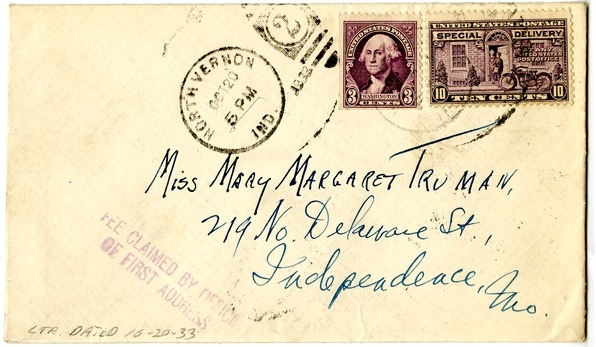 NORTH VERNON
OCT 20
5 PM
IND.
2
1933
UNITED STATES POSTAGE
3 WASHINGTON 3
CENTS
UNITED STATES POSTAGE
SPECIAL DELIVERY
AT ANY
UNITED STATES
POST OFFICE
10 TEN CENTS 10
MISS MARY MARGARET TRUMAN,
219 No. Delaware St.,
Independence,
Mo.
FEE CLAIMED BY OFFICE
OF FIRST ADDRESS
LTR. DATED 10-20-33